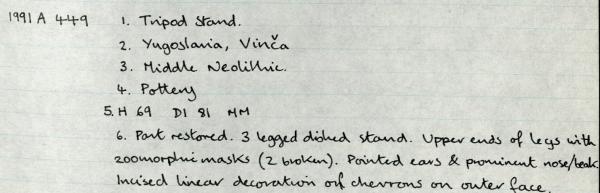 1991 A 449 1. Tripod Stand.
2. Yugoslavia, Vinča
3. Middle Neolithic.
4. Pottery
5. H 69 DI 81 MM
6. Part restored. 3 legged dished stand. Upper ends of legs with
zoomorphic masks (2 broken). Pointed ears & prominent nose/beak
Incised linear decoration of chevrons on outer face.